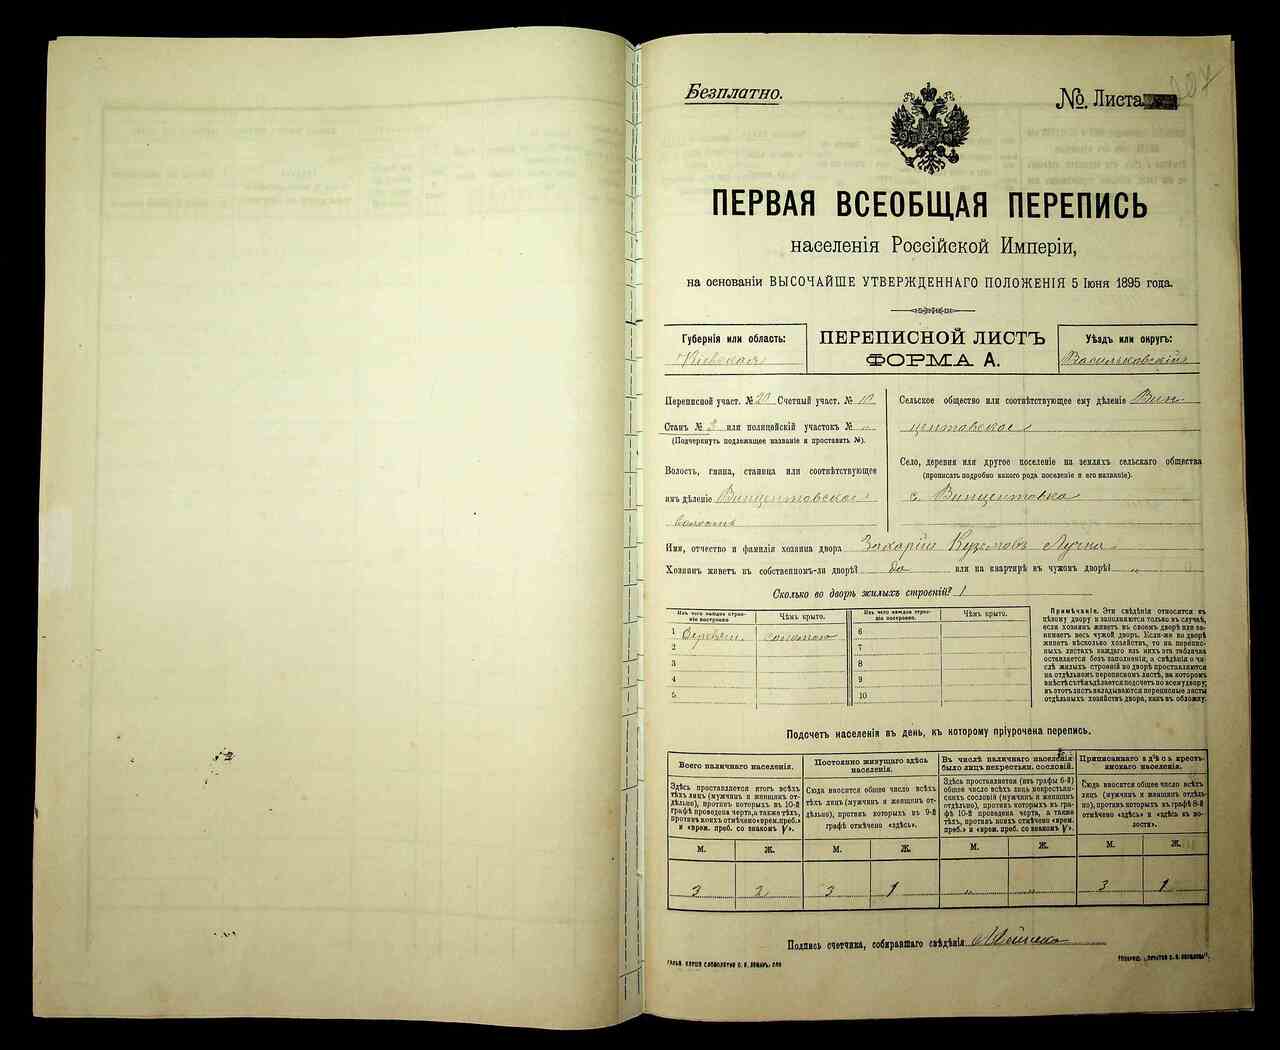 Безплатно.
№. Листа
207
ПЕРВАЯ ВСЕОБЩАЯ ПЕРЕПИСЬ
населенія Россійской Имперіи,
на основаніи ВЫСОЧАЙШЕ УТВЕРЖДЕННАГО ПОЛОЖЕНІЯ 5 Іюня 1895 года.
Губернія или область:
Кіевская
ПЕРЕПИСНОЙ ЛИСТЪ
ФОРМА А.
Уѣздъ или округъ:
Васильковскій
Переписной участ. № 20 Счетный участ. № 10
Станъ № 3 или полицейскій участокъ № „
(Подчеркнуть подлежащее названіе и проставить №).
Волость, гмина, станица или соотвѣтствующее
имъ дѣленіе Винцентовская
волость
Сельское общество или соотвѣтствующее ему дѣленіе Вин-
центовское
Село, деревня или другое поселеніе на земляхъ сельскаго общества
(прописать подробно какого рода поселеніе и его названіе).
с. Винцентовка
Имя, отчество и фамилія хозяина двора Захарій Кузьмовъ
Хозяинъ живетъ въ собственномъ-ли дворѣ? да или на квартирѣ въ чужомъ дворѣ? „
Сколько во дворѣ жилыхъ строеній? 1
Изъ чего каждое строе-
ніе построено
Чѣмъ крыто.
Изъ чего каждое строе-
ніе построено.
Чѣмъ крыто.
1 Деревян. соломою
2
3
4
5
6
7
8
9
10
Примѣчаніе. Эти свѣдѣнія относятся къ
цѣлому двору и заполняются только въ случаѣ,
если хозяинъ живетъ въ своемъ дворѣ или за-
нимаетъ весь чужой дворъ. Если-же во дворѣ
живетъ нѣсколько хозяйствъ, то на перепис-
ныхъ листахъ каждаго изъ нихъ эта табличка
оставляется безъ заполненія, а свѣдѣнія о чи-
слѣ жилыхъ строеній во дворѣ проставляются
на отдѣльномъ переписномъ листѣ, на которомъ
вмѣстѣ съ тѣмъ дѣлается подсчетъ по всему двору;
въ этотъ листъ вкладываются переписные листы
отдѣльныхъ хозяйствъ двора, какъ въ обложку.
Подсчетъ населенія въ день, къ которому пріурочена перепись.
Всего наличнаго населенія.
Здѣсь проставляется итогъ всѣхъ
тѣхъ лицъ (мужчинъ и женщинъ от-
дѣльно), противъ которыхъ въ 10-й
графѣ проведена черта, а также тѣхъ,
противъ коихъ отмѣчено «врем. преб.»
и «врем. преб. со знакомъ V».
Постоянно живущаго здѣсь
населенія.
Сюда вносится общее число всѣхъ
тѣхъ лицъ (мужчинъ и женщинъ от-
дѣльно), противъ которыхъ въ 9-й
графѣ отмѣчено «здѣсь».
Въ числѣ наличнаго населенія
было лицъ некрестьян. сословій.
Здѣсь проставляется (изъ графы 6-й)
общее число всѣхъ лицъ некрестьян-
скихъ сословій (мужчинъ и женщинъ
отдѣльно), противъ которыхъ въ гра-
фѣ 10 проведена черта, а также
тѣхъ, противъ коихъ отмѣчено «врем.
преб.» и «врем. преб. со знакомъ V».
Приписаннаго здѣсь кресть-
янскаго населенія.
Сюда вносится общее число всѣхъ
лицъ (мужчинъ и женщинъ отдѣль-
но), противъ которыхъ въ графѣ 8-й
отмѣчено «здѣсь» и «здѣсь въ во-
лости».
М. Ж. М. Ж. М. Ж. М. Ж.
3 2 3 1 „ „ 3 1
Подпись счетчика, собиравшаго свѣдѣнія